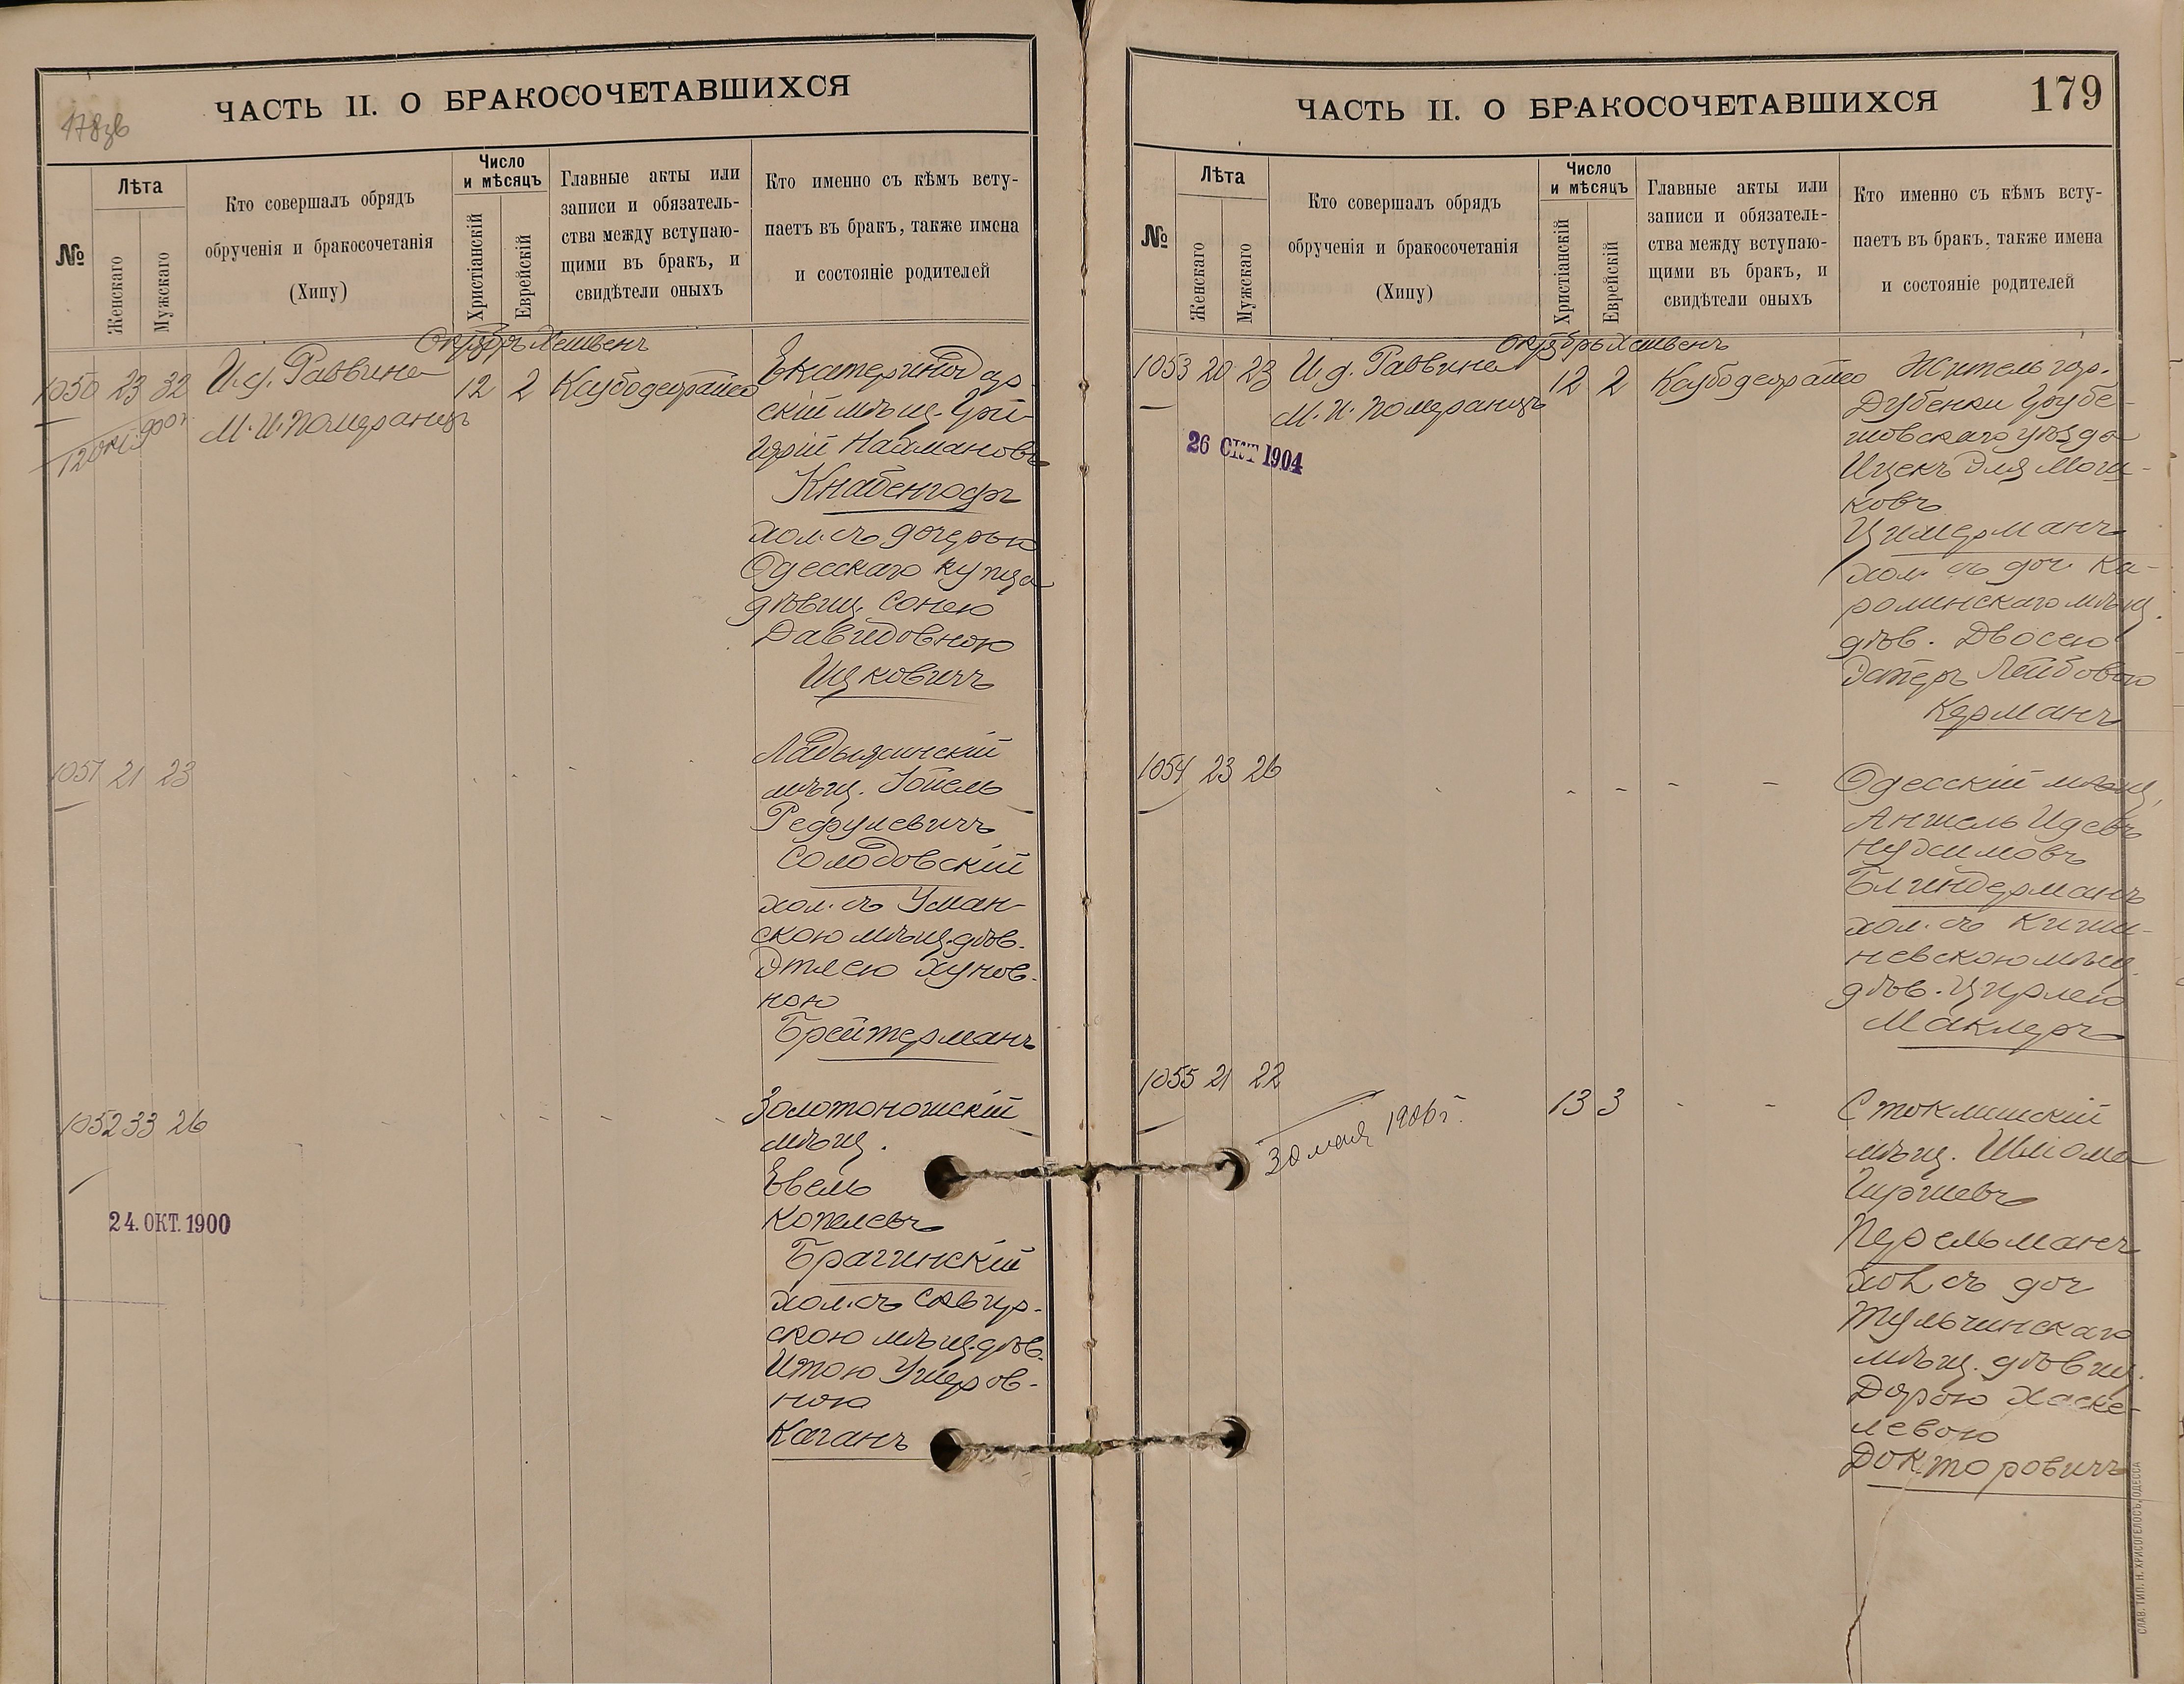 178зв
ЧАСТЬ II. О БРАКОСОЧЕТАВШИХСЯ
№
Лѣта
Женскаго
Мужскаго
Кто совершалъ обрядъ
обрученія и бракосочетанія
(Хипу)
Число
и мѣсяцъ
Христіанскій
Еврейскій
Главные акты или
записи и обязатель-
ства между вступаю-
щими въ бракъ, и
свидѣтели оныхъ
Кто именно съ кѣмъ всту-
паетъ въ бракъ, также имена
и состояніе родителей
Октябрь Хешвенъ
1050 23 32 И.д. Раввина 12 2
М. И. Померанцъ
Екатеринодар-
скій мѣщ. Гри-
горій Наймановъ
Кнабенгофъ
хол. съ дочерью
Одесскаго купца
дѣвиц. Сонею
Давидовною
Ицковичъ
1051 21 23
Ладыжинскій
мѣщ. Іойель
Рефулевичъ
Солодовскій
хол. съ Уман-
скою мѣщ. дѣв.
Этлею Хунов-
ною
Брейтерманъ
1052 33 26
24. ОКТ. 1900
Золотоношскій
мѣщ.
Евель
Копелевъ
Брагинскій
хол. съ Сквир-
скою мѣщ. дѣв.
Итою Ушеров-
ною
Каганъ
ЧАСТЬ II. О БРАКОСОЧЕТАВШИХСЯ
179
№
Лѣта
Женскаго
Мужскаго
Кто совершалъ обрядъ
обрученія и бракосочетанія
(Хипу)
Число
и мѣсяцъ
Христіанскій
Еврейскій
Главные акты или
записи и обязатель-
ства между вступаю-
щими въ бракъ, и
свидѣтели оныхъ
Кто именно съ кѣмъ всту-
паетъ въ бракъ, также имена
и состояніе родителей
Октябрь Хешвенъ
1053 20 23 И.д. Раввина 12 2
М. И. Померанцъ
26 ОКТ 1904
Житель гор.
Дубенки Грубе-
шовскаго уѣзда
Ицекъ Эля Мош-
ковъ
Цимерманъ
хол. съ доч. Ка-
ролинскаго мѣщ.
дѣв. Двосею
Эстеръ Лейбовою
Керманъ
1054 23 26
Одесскій мѣщ.
Аншель Идевъ
Нухимовъ
Блиндерманъ
хол. съ Киши-
невскою мѣщ.
дѣв. Цирлею
Маклеръ
1055 21 22 13 3
30 мая 1906 г.
Стоклишскій
мѣщ. Шліома
Гиршевъ
Перельманъ
хол. съ доч
Тульчинскаго
мѣщ. дѣвиц.
Дорою Хаске-
левою
Докторовичъ
СЛАВ. ТИП. Н. ХРИСОГЕЛОСЪ, ОДЕССА